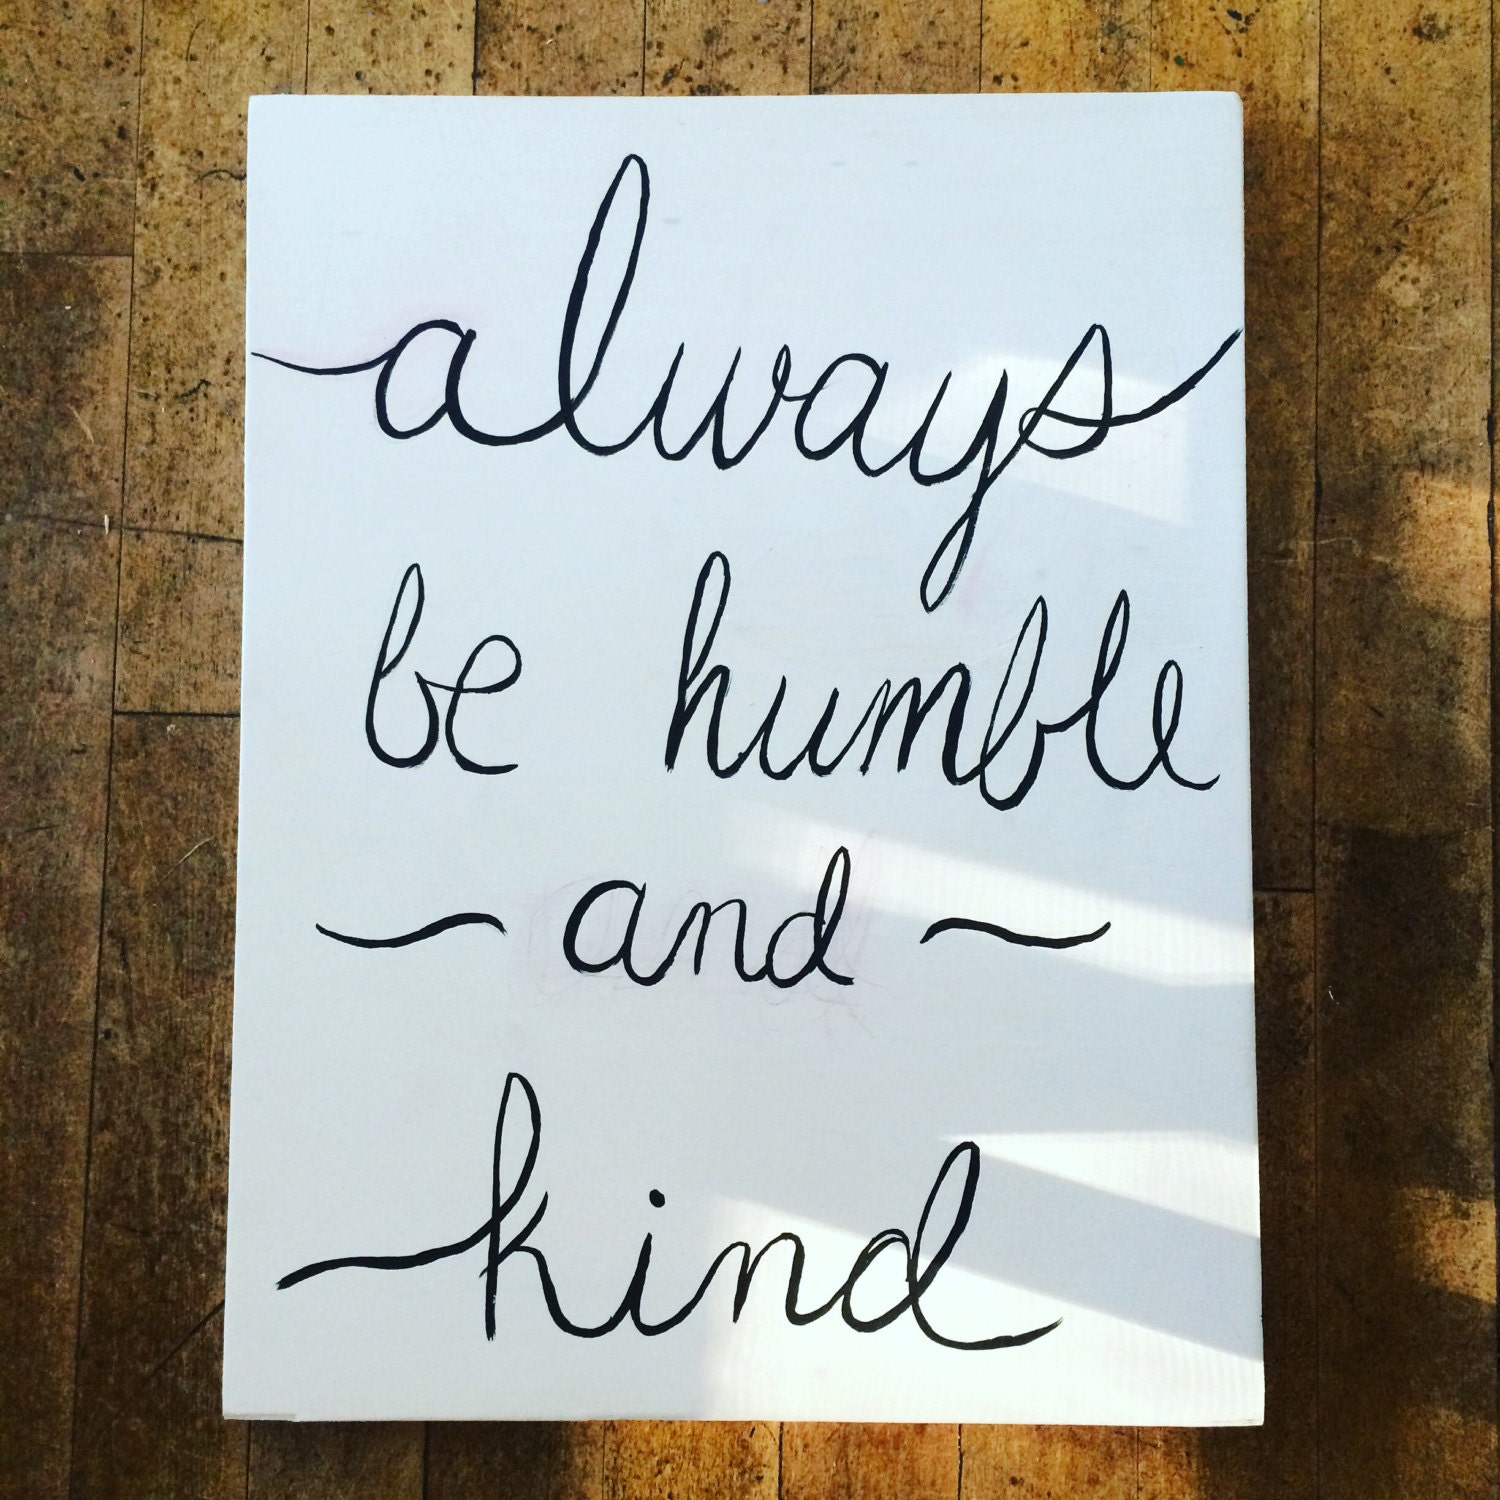 always
be humble
~ and ~
kind